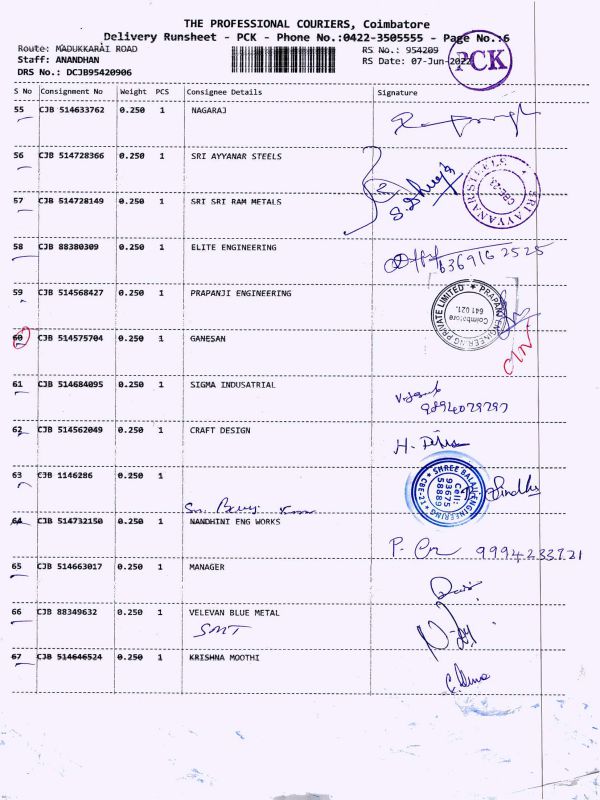 THE PROFESSIONAL COURIERS, Coimbatore
Delivery Runsheet - PCK - Phone No.:0422-3505555 - Page No.:6
Route: MADUKKARAI ROAD RS No.: 954209
Staff: ANANDHAN RS Date: 07-Jun-2022
DRS No.: DCJB95420906
PCK
S No Consignment No Weight PCS Consignee Details Signature
55 CJB 514633762 0.250 1 NAGARAJ
56 CJB 514728366 0.250 1 SRI AYYANAR STEELS
2
SRI AYYANAR STEELS CBE-23
57 CJB 514728149 0.250 1 SRI SRI RAM METALS
58 CJB 88380309 0.250 1 ELITE ENGINEERING
6369162525
59 CJB 514568427 0.250 1 PRAPANJI ENGINEERING
PRAPANJ ENGINEERING PRIVATE LIMITED Coimbatore 641 021.
60 CJB 514575704 0.250 1 GANESAN
61 CJB 514684095 0.250 1 SIGMA INDUSATRIAL
9894029297
62 CJB 514562049 0.250 1 CRAFT DESIGN
63 CJB 1146286 0.250 1
SHREE BALAJI ENGINEERING CBE-21 Cell: 93675 58889
Sindhu
64 CJB 514732150 0.250 1 NANDHINI ENG WORKS
9994233721
65 CJB 514663017 0.250 1 MANAGER
66 CJB 88349632 0.250 1 VELEVAN BLUE METAL
SMT
67 CJB 514646524 0.250 1 KRISHNA MOOTHI